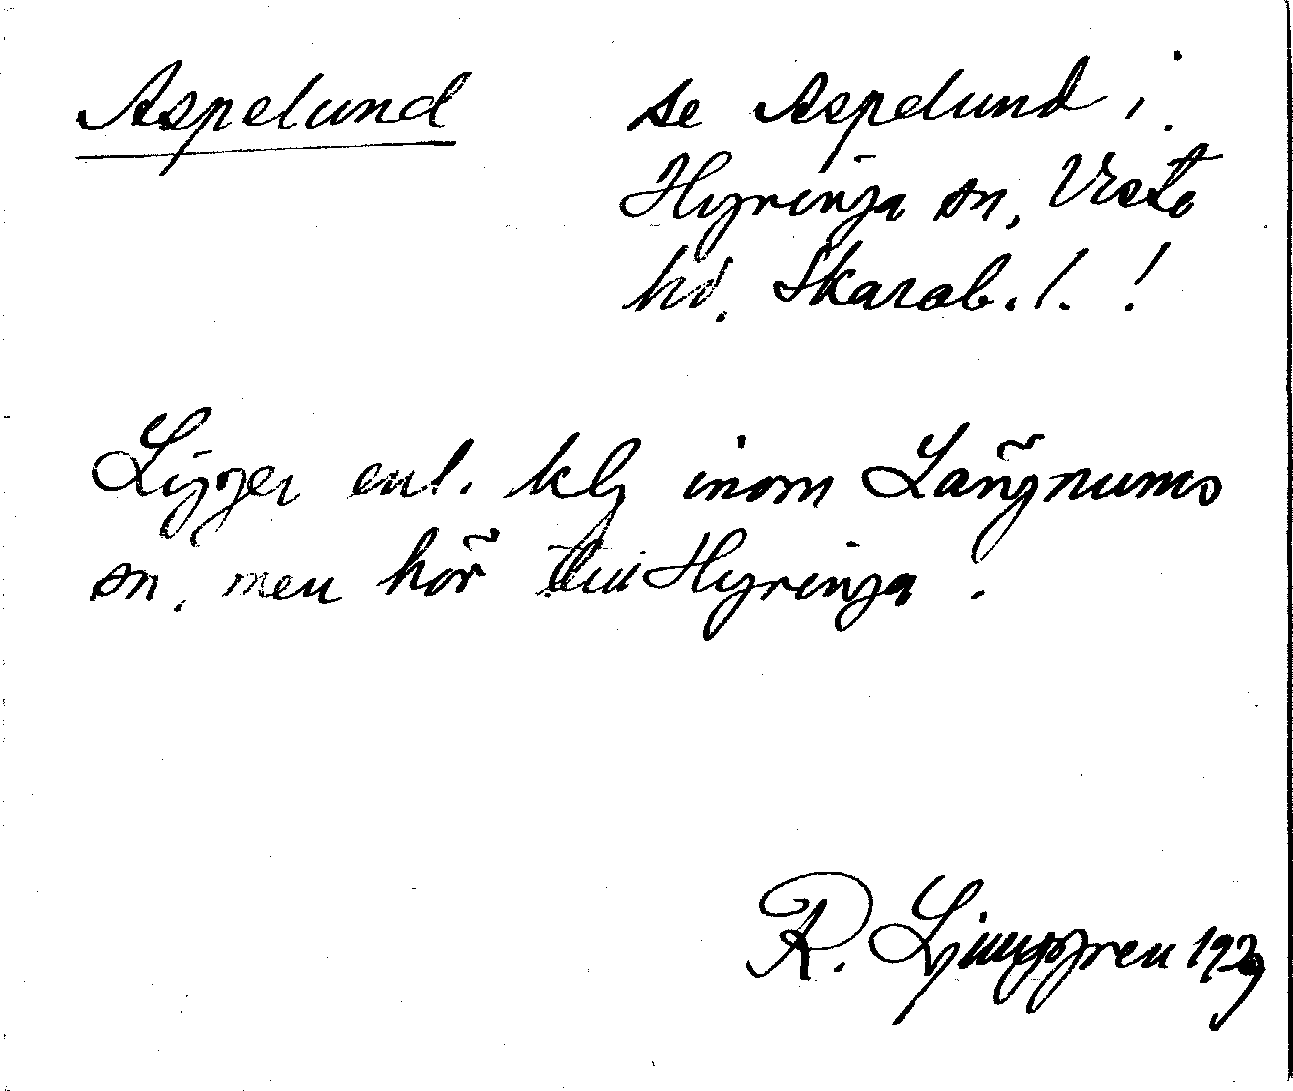 Aspelund se Aspelund i
Hyringa sn, Viste
hd. Skarab. l. !
Ligger enl. klj inom Långnums
sn. men hör till Hyringa.
R. Ljunggren 1929